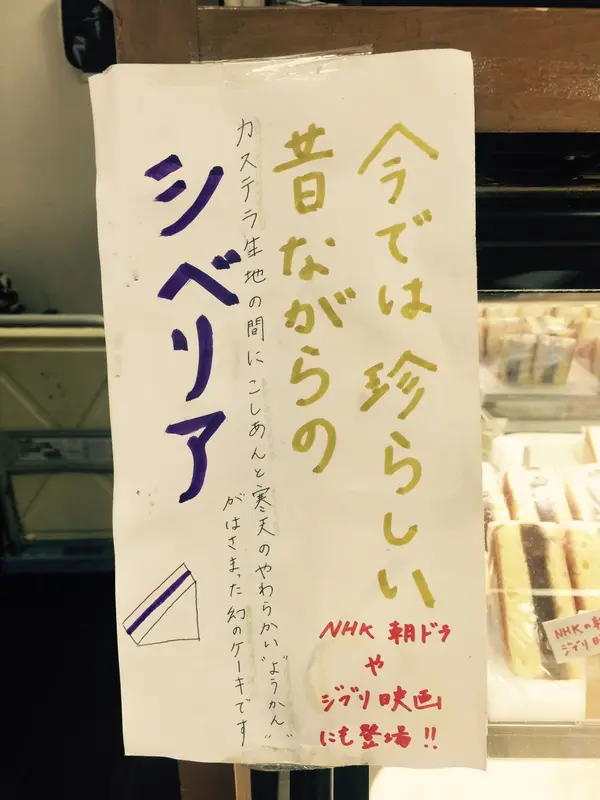 今では珍らしい
昔ながらの
カステラ生地の間にこしあんと寒天のやわらかい"ようかん"
がはさまった幻のケーキです
シベリア
NHK 朝ドラ
や
ジブリ映画
にも登場!!
NHKの朝
ジブリ映